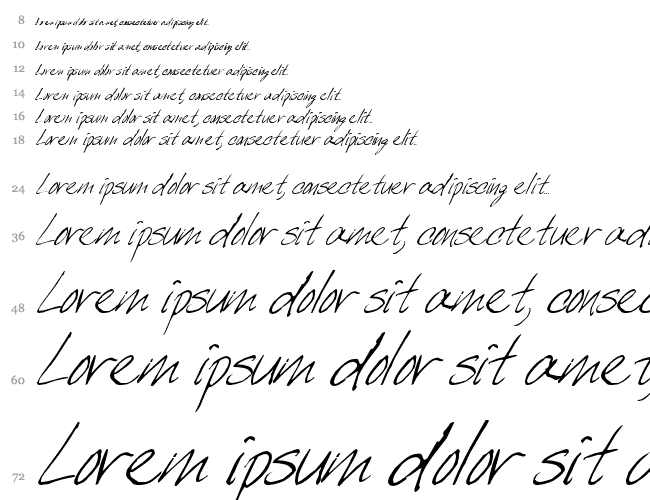 8 Lorem ipsum dolor sit amet, consectetuer adipiscing elit.
10 Lorem ipsum dolor sit amet, consectetuer adipiscing elit.
12 Lorem ipsum dolor sit amet, consectetuer adipiscing elit.
14 Lorem ipsum dolor sit amet, consectetuer adipiscing elit.
16 Lorem ipsum dolor sit amet, consectetuer adipiscing elit.
18 Lorem ipsum dolor sit amet, consectetuer adipiscing elit.
24 Lorem ipsum dolor sit amet, consectetuer adipiscing elit.
36 Lorem ipsum dolor sit amet, consectetuer adi
48 Lorem ipsum dolor sit amet, consec
60 Lorem ipsum dolor sit amet,
72 Lorem ipsum dolor sit a